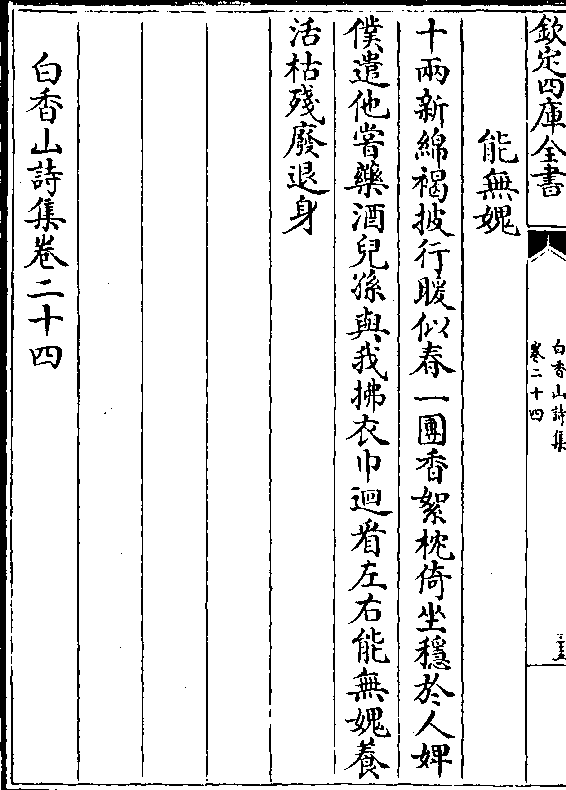 欽定四庫全書
白香山詩集
卷二十四
能無媿
十兩新綿褐披行暖似春一團香絮枕倚坐穩於人婢
僕遣他嘗藥酒兒孫與我拂衣巾迴看左右能無媿養
活枯殘廢退身
白香山詩集卷二十四